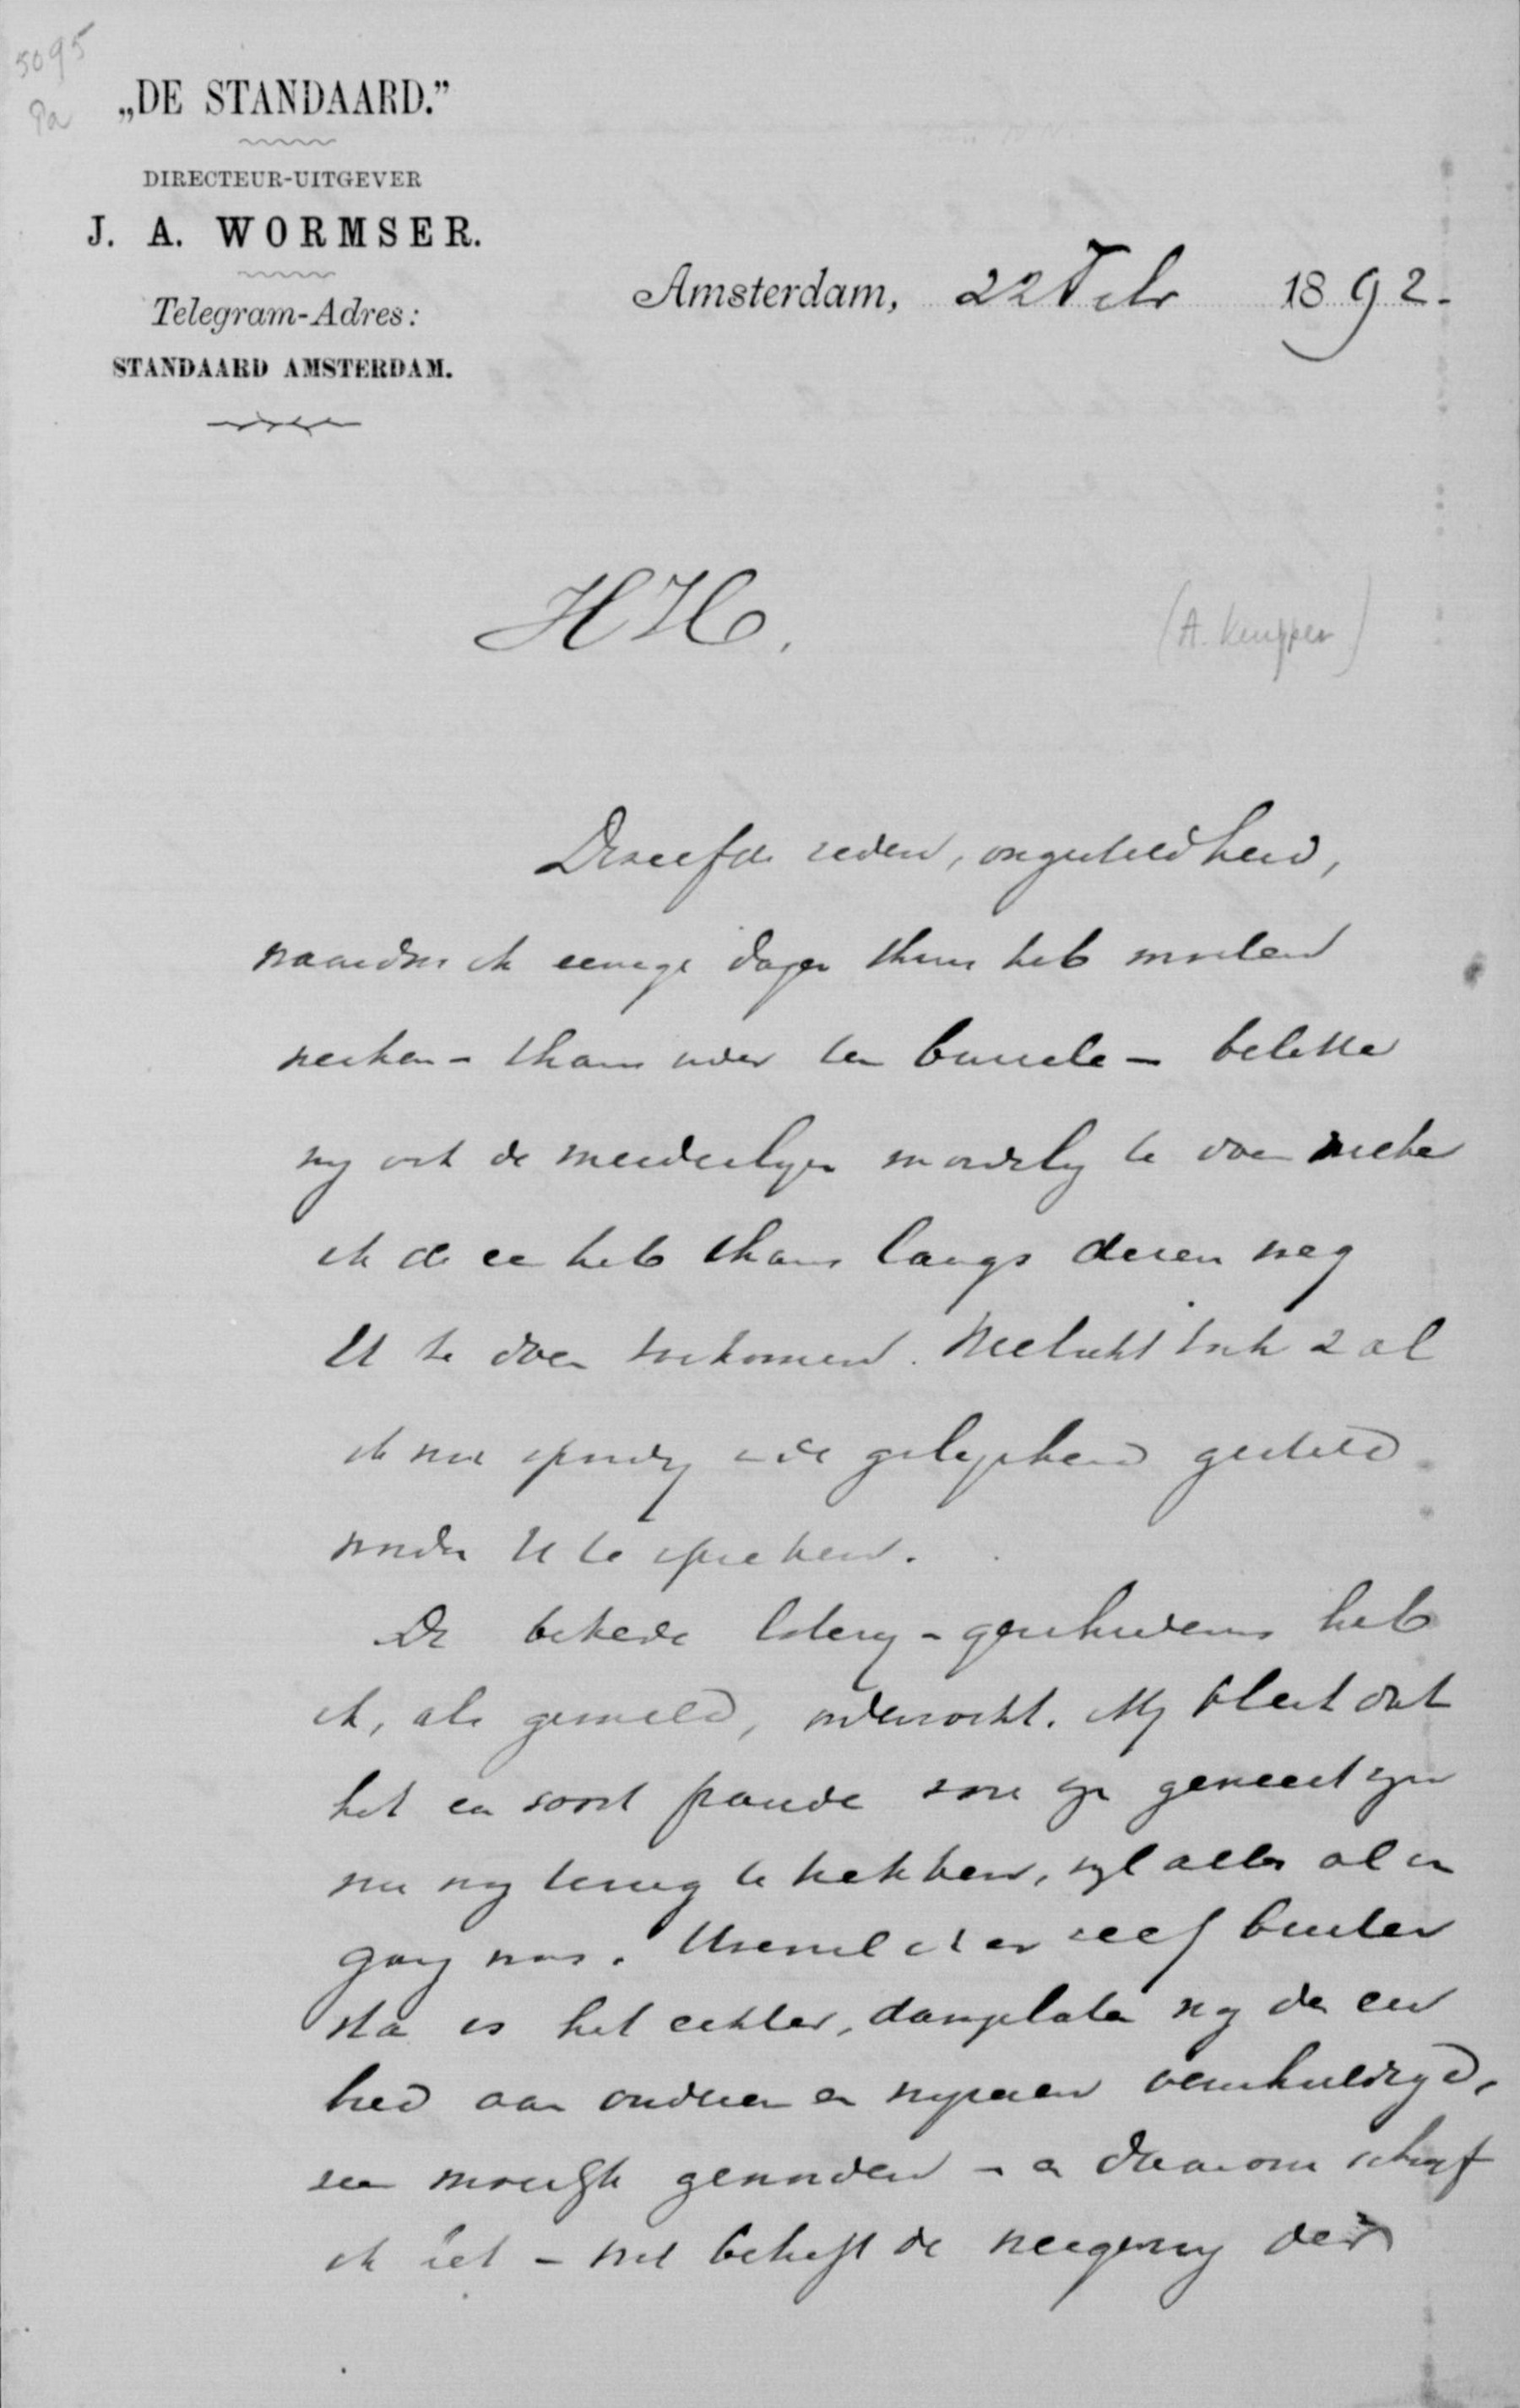 5095
Pa
„DE STANDAARD.”
DIRECTEUR-UITGEVER
J. A. WORMSER.
Telegram-Adres:
STANDAARD AMSTERDAM.
Amsterdam, 22 Febr 1892.
HH.
(A. Kuyper)
Dezelfde reden, ongesteldheid,
waardoor ik eenige dagen thuis heb moeten
werken - thans weer ten bureele - belette
mij ook de mededeelingen mondeling te doen welke
ik de eer heb thans langs dezen weg
U te doen toekomen. Wellicht toch zal
ik niet spoedig in de gelegenheid gesteld
worden U te spreken.
De bekende loterij-geschiedenis heb
ik, als gemeld, onderzocht. Mij bleek dat
het een soort fraude zou zijn geweest zijn
nu nog terug te trekken, wijl alles al in
gang was. Hoewel ik er zelf buiten
sta is het echter, dan
heb aan anderen verschuldigd,
een moeilijk geworden - en daarom schreef
ik iet - wat betreft de weigering der